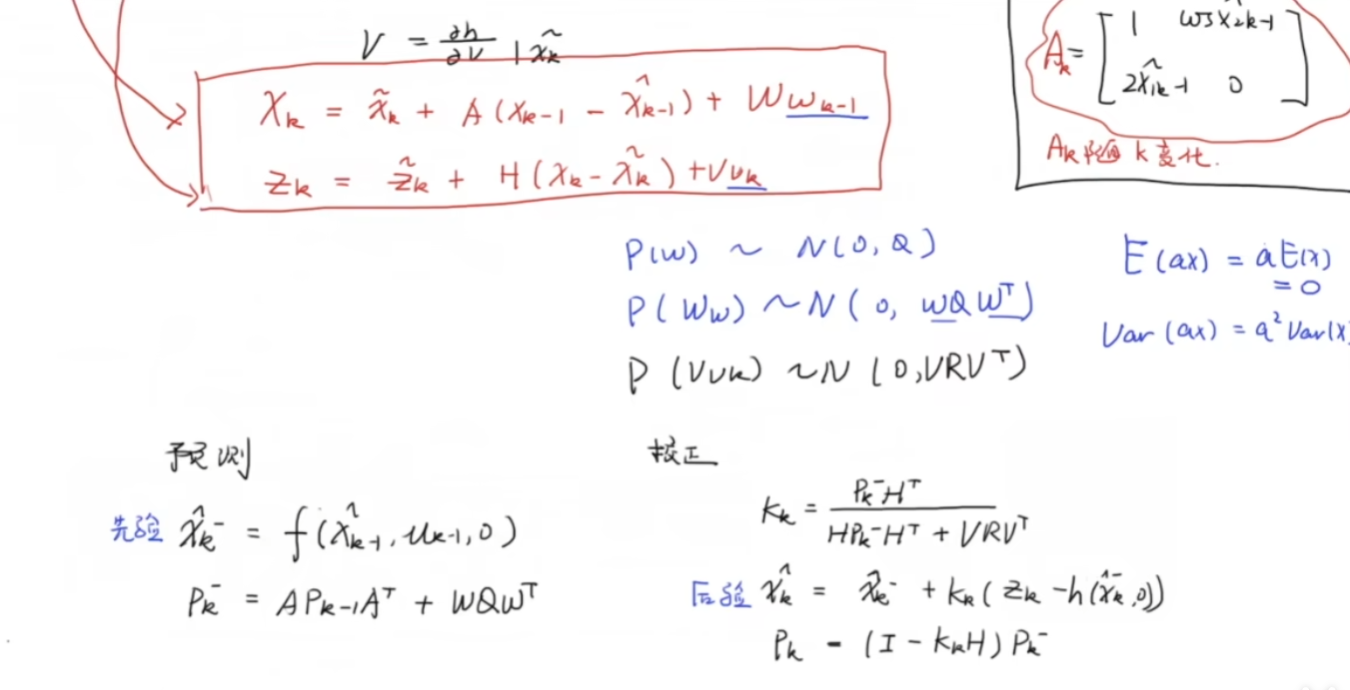 V = ∂h/∂V | x̃k
Xk = x̃k + A(xk-1 - x̂k-1) + Wwk-1
zk = z̃k + H(xk - x̃k) + Vvk
Ak = [1 cos x̂2k-1
2x̂1k-1 0]
Ak 随 k 变化.
P(w) ~ N(0, Q)
P(Ww) ~ N(0, WQWᵀ)
P(Vvk) ~ N(0, VRVᵀ)
E(ax) = aE(x)
= 0
Var(ax) = a²Var(x
预测
先验 x̂k⁻ = f(x̂k-1, uk-1, 0)
Pk⁻ = APk-1Aᵀ + WQWᵀ
校正
Kk = Pk⁻Hᵀ / (HPk⁻Hᵀ + VRVᵀ)
后验 x̂k = x̂k⁻ + Kk(zk - h(x̂k⁻, 0))
Pk = (I - KkH)Pk⁻